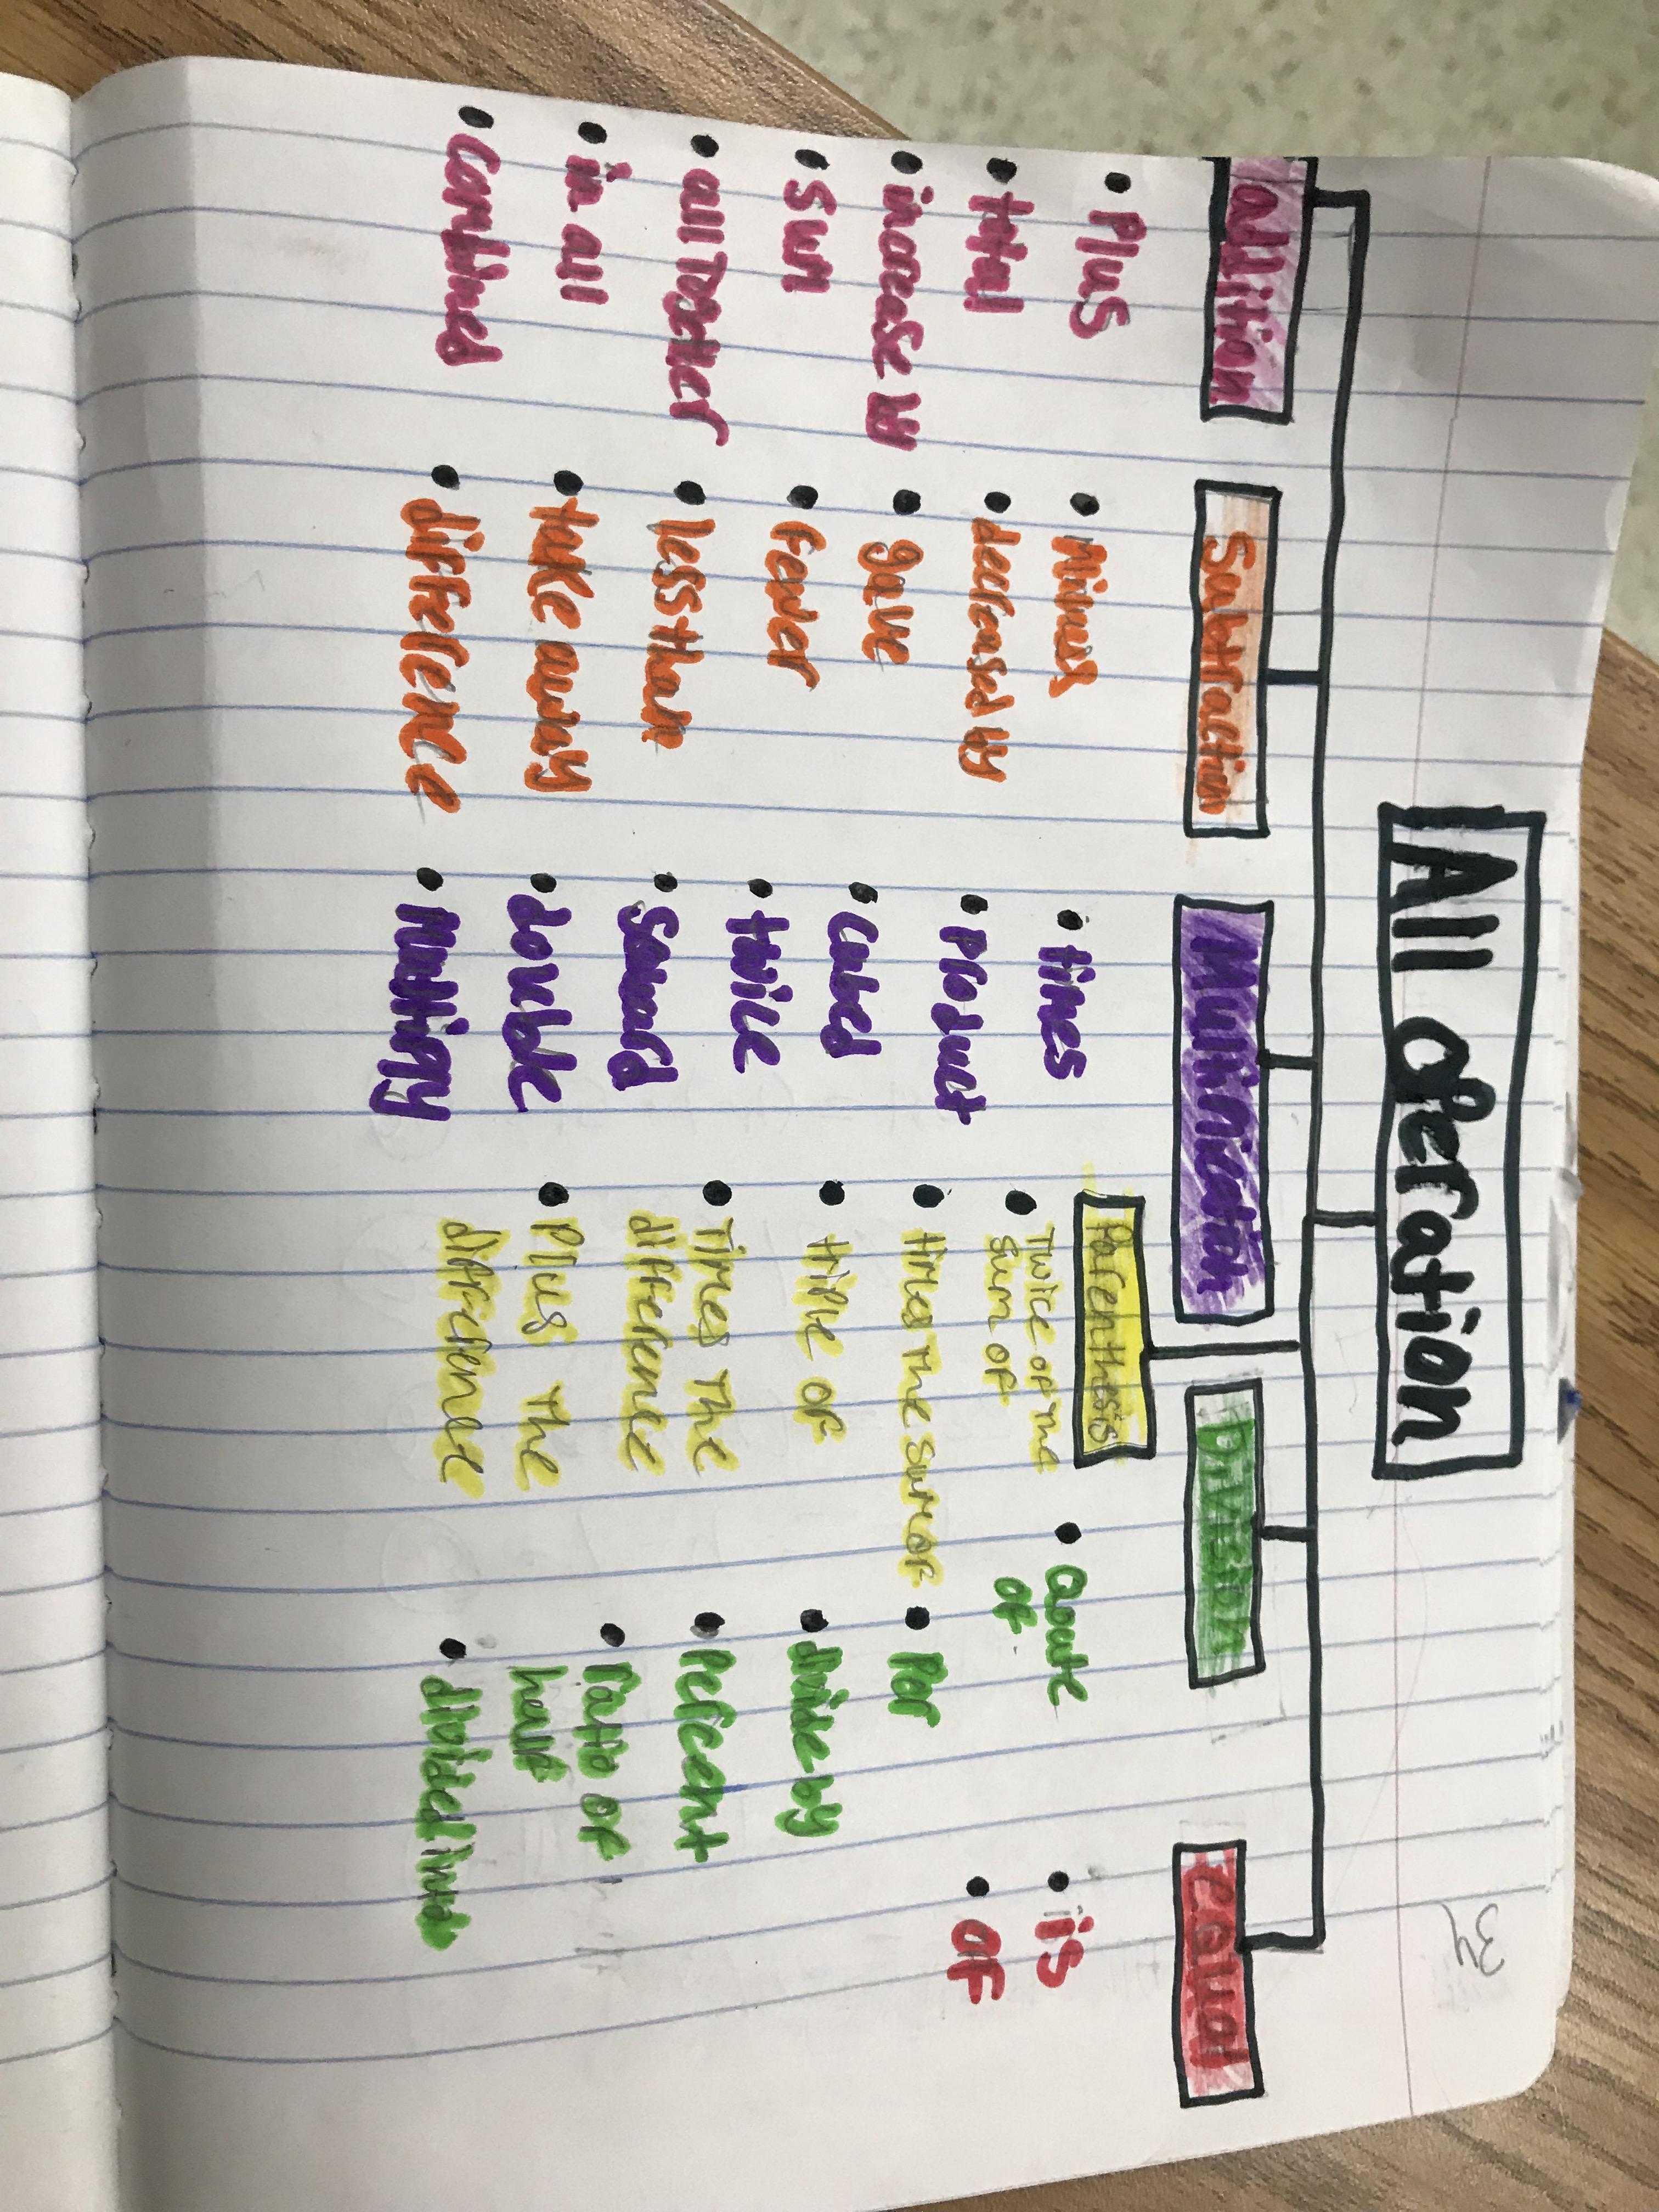 34
All operation
addition
Plus
total
increase by
sum
all together
in all
combined
Subtraction
minus
decreased by
gave
fewer
less than
take away
difference
Multiplication
times
Product
cubed
twice
Squared
double
Multiply
Parenthesis
Twice of the
sum of
times the sum of
triple of
Times the
difference
Plus the
difference
Division
Quote
of
Per
divide by
Percent
ratio of
half
divided into
Equal
is
of